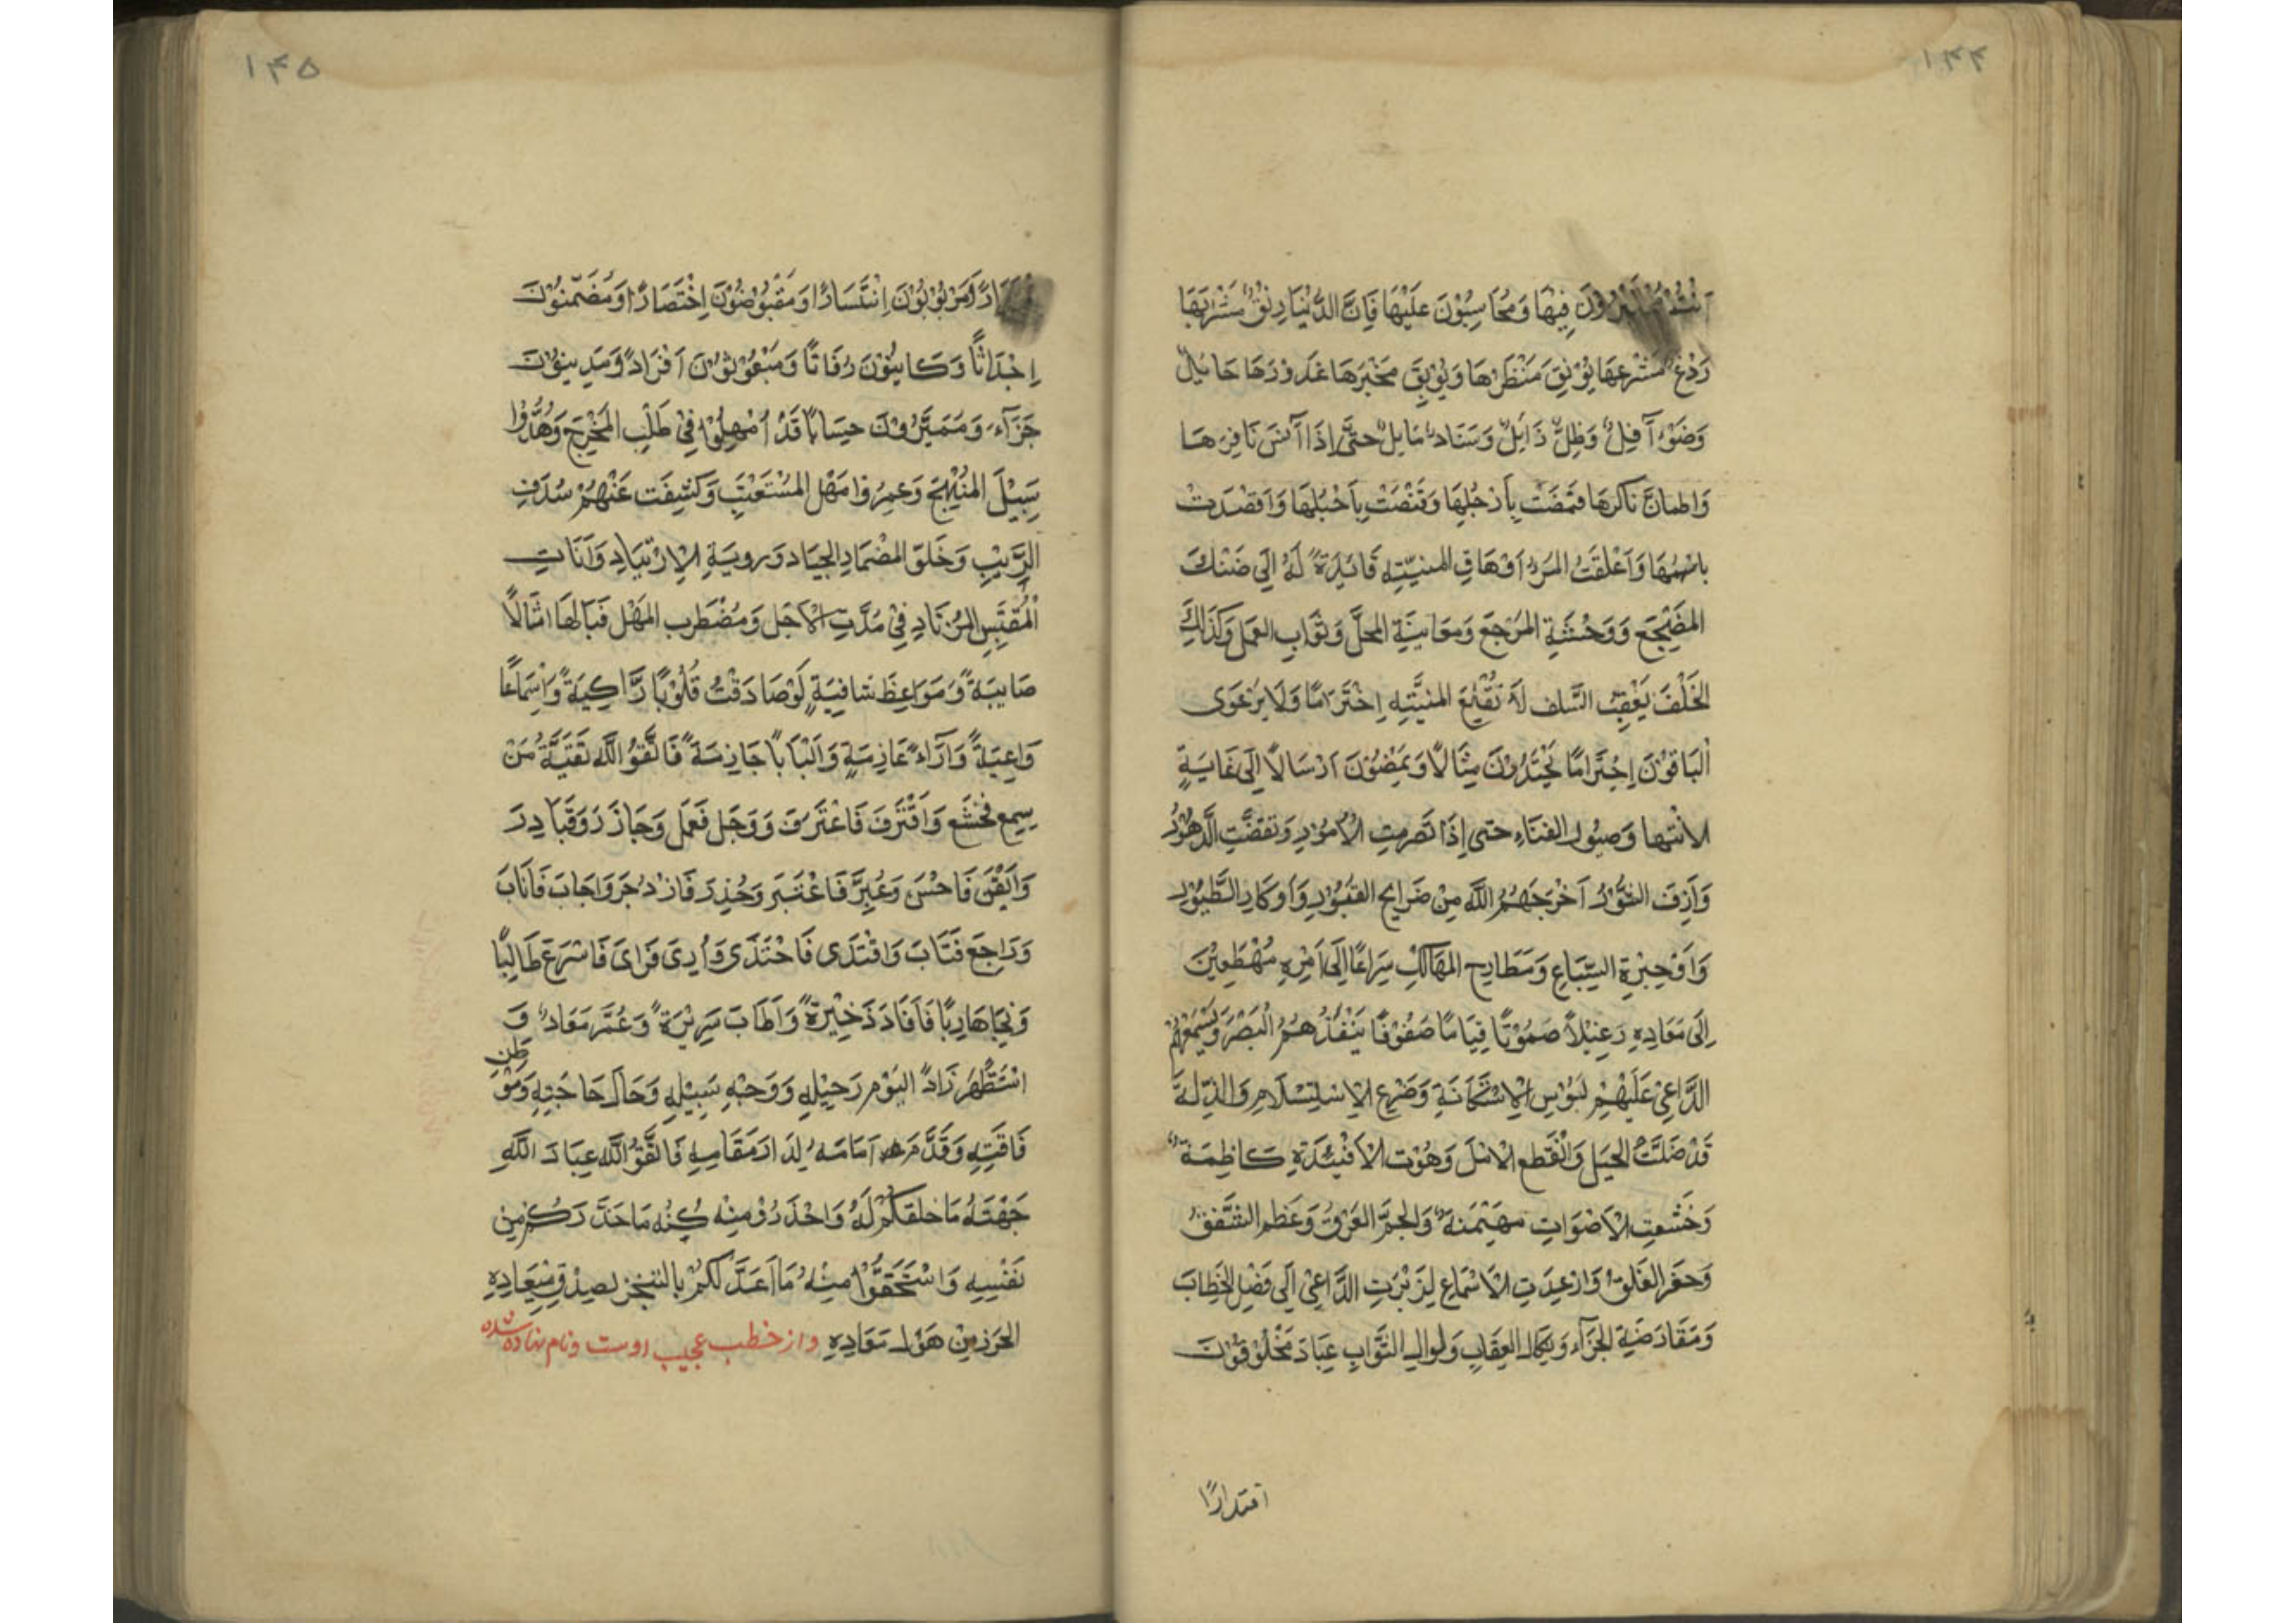 ١٤٤
اَنْتُمْ مُخْتَبَرُوْنَ فِيْهَا وَمُحَاسَبُوْنَ عَلَيْهَا فَاِنَّ الدُّنْيَا رِنْقٌ مَشْرَبُهَا
رَدْغٌ مَشْرَعُهَا يُوْنِقُ مَنْظَرُهَا وَيُوْبِقُ مَخْبَرُهَا غَدُوْرُهَا حَائِلٌ
وَضَوْءٌ آفِلٌ وَظِلٌّ زَائِلٌ وَسَنَادٌ مَايِلٌ حَتَّى اِذَا آنَسَ نَافِرُهَا
وَاطمانَّ نَاكِرُهَا قَمَصَتْ بِاَرْجُلِهَا وَقَنَصَتْ بِاَحْبُلِهَا وَاَقْصَدَتْ
باسهمها وَاَعْلَقَتْ المَرْءَ اَوْهَاقِ المنيّتِهِ قَائِدَةً لَهُ اِلَى ضَنْكَ
المَضْجَعِ وَوَحْشَةِ المَرْجَعِ وَمَعَايِنَةِ المحلَّ وَثَوَابِ العَمَلِ وَكَذٰلِكَ
الخَلْفَ يَعْقِبُ السَّلف لَا تُقْلِعُ المنيَّتِهِ اِخْتَرَامًا وَلَا يَرْعَوى
الْبَاقُوْنَ اِجْتِرَامًا يَحْتَذُوْنَ مِثَالًا وَيَمْضُوْنَ اَرْسَالًا اِلَى غَايَةِ
الانتها وَصيُور الفَنَاءِ حتى اِذَا تَصرمتِ الْاُمُوْرِ وَتَقَضَّتِ الدَّهُوْرُ
وَاَزِفَ النشُوْرُ اَخْرَجَهُمُ اللّٰهِ مِنْ ضَرَايحِ القُبُوْرِ وَاَوكَارِ الطيُوْرِ
وَاَوْجِرَةِ السِّبَاعِ وَمَطَارِحِ المَهَالِكِ سِرَاعًا اِلَى اَمْرِهِ مُهْطَعِيْنَ
اِلَى مَعَادِهِ رَعِيْلًا صَمُوْتًا قِيَامًا صُفُوْفًا يَنْفُذُهُمُ الْبَصَرُ وَيُسْمِعُهُمْ
الدَّاعِىْ عَلَيْهِمْ لَبُوْسِ الْاِسْتَكَانَةِ وَضَرْعِ الْاِسْتِسْلَامِ وَالذِّلَّةِ
قَدْ ضَلَّتُ الْحِيَلِ وَانْقَطع الْاَمَلَ وَهَوَتِ الْاَفْئِدَةِ كَاظِمَةً
وَخَشَعَتِ الْاَصْوَاتِ مهَيْمَنةً وَالْجمَّ العَرَقُ وَعَظم الشَّفَقُ
وَحفز العَلَقُ وَارعِدَتِ الْاَسْمَاعِ لِزَبْرَتِ الدَّاعِىْ اِلَى فَصْلِ الخِطَابَ
وَمَقَارَضَةِ الْجَزَآءِ وَنِكَالِ العِقَابِ وَنَوالِ الثَّوَابِ عِبَادَ مَخْلُوْقُوْنَ
اقتدارًا
١٤٥
وَمَرْبُوْبُوْنَ اِنْتَسَارًا وَمَقْبُوْضُوْنَ اِخْتَصَارًا وَمُضَمَّنُوْنَ
اِجْدَاثًا وَكَايِنُوْنَ رُفَاتًا وَمَبْعُوْثُوْنَ اَفْرَادً وَمَدِيْنُوْنَ
جَزَآءَ وَمُمَيَّزُوْنَ حِسَابًا قَدْ اُمْهِلُوْا فِىْ طَلَبِ المَخْرَجِ وَهُدُوْا
سَبِيْلَ المَنْهَجِ وَعمِرُوا مَهْل المُسْتَعْتِبِ وَكشِفَت عَنْهُمْ سُدَفِ
الرَّيْبِ وَخَلّوَ المضْمَارِ الجِيَادِ وَرويَةِ الْاِرْتِيَادِ وَاَنَاتِ
الْمُقْتَبِسِ المُرْتَادِ فِىْ مُدَّتِ الْاَجَلِ وَمُضْطَرِب المَهْلِ فَيَالَهَا امْثَالًا
صَايِبَةً وَمَوَاعِظَ شافِيَةٍ لَوْ صَادَفَتْ قُلُوْبًا زَّاكِيَةً وَاَسْمَاعًا
وَاعِيَةً وَآرَاءً عَازِمَةٍ وَاَلْبَابًا حَازِمَةً فَاتَّقوُ اللّٰهَ تَقَيَّةُ مَنْ
سِمِعَ فَخَشَعَ وَاقْتَرَفَ فَاعْتَرَفَ وَوَجَلَ فَعَمَلَ وَحَاذَرَ وَفَبَادِرَ
وَاَيْقَنَ فَاحْسَنَ وَعُبِرَّ فَاعْتَبَر وَحُذِرَ فَازْدُجَرَ وَاَجَابَ فَاَنَابَ
وَرَاجَعَ فَتَابَ وَاقْتَدَى فَاحْتَذَى وَاُرِىَ فَرَاىَ فَاسْرَعَ طَالِبًا
وَنَجَا هَارِبًا فَاَفَادَ ذَخِيْرَةً وَاَطَابَ سَرِيْرَةً وَعُمَّرَ مَعَادً وَ
اسْتَظْهَرَ زَادً اليَوْمِ رَحِيْلِهِ وَوَجْهِ سَبِيْلِهِ وَحَالِ حَاجَتِهِ وَمَوْطِنِ
فَاقَتِهِ وَقَدَّمَ اَمَامَهُ لِدَارَ مَقَامِهِ فَاتَّقُوْ اللّٰه عِبَادَ اللّٰهِ
جَهَتهُ مَا خلقكُمْ لَهُ وَاحْذَرُوْ مِنْه كُنْهَ مَا حَذَّرَكُمْ مِنْ
نَفْسِهِ وَاسْتَحَقُّوْا مِنْهُ مَا اَعَدَّ لَكُمْ بِالتنَجزِ لصِدْقِ مِيْعَادِهِ
الحَرَزِ مِنْ هَوْلِ مَعَادِهِ واز خطب عجيب اوست ونام نهاده شده